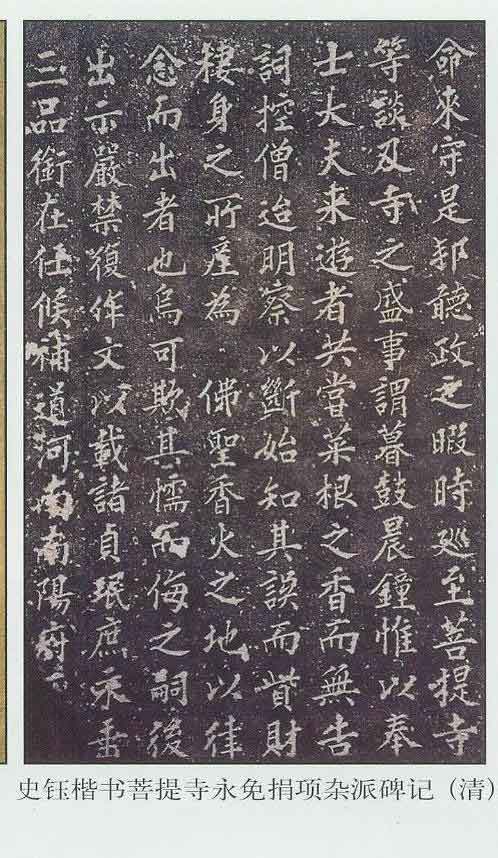 命來守是邦聽政之暇時廵至菩提寺
等談及寺之盛事謂暮鼓晨鐘惟以奉
士大夫来遊者共嘗菜根之香而無告
詞控僧迨明察以斷始知其誤而貲財
棲身之所產為 佛聖香火之地以律
念而出者也烏可欺其懦而侮之嗣後
出示嚴禁復作文以載諸貞珉庶永垂
三品銜在任候補道河南南陽府
史钰楷书菩提寺永免捐项杂派碑记（清）